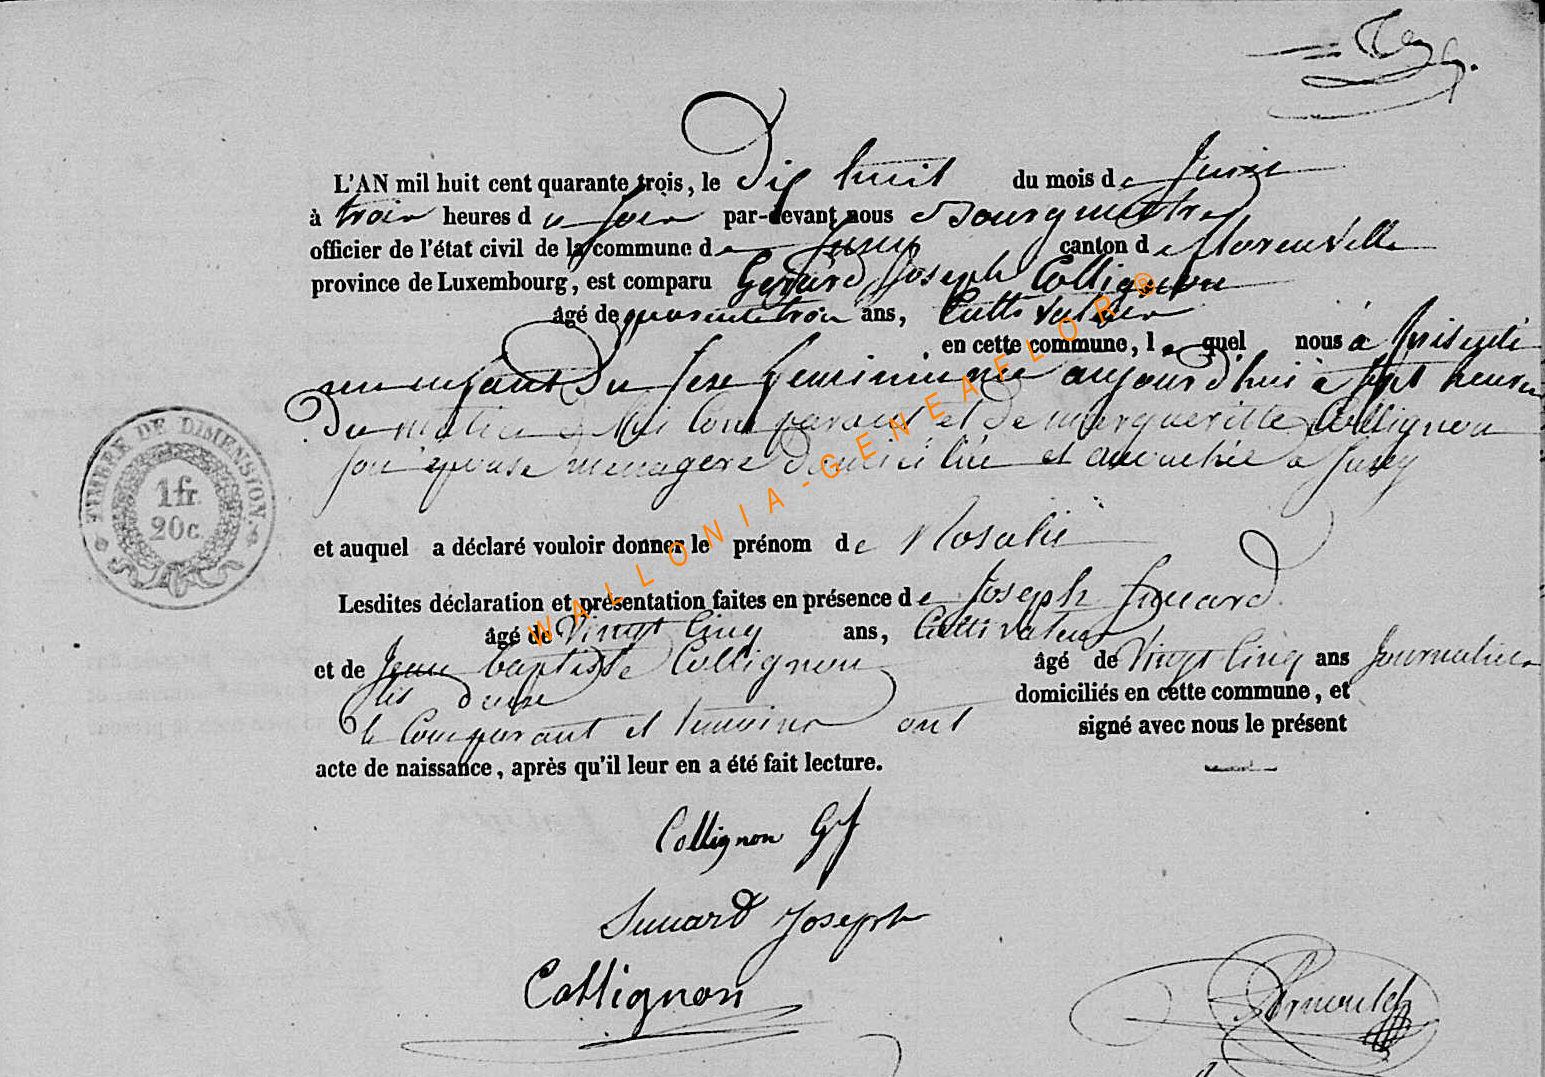 L'AN mil huit cent quarante trois, le Dix huit du mois de Juin
à trois heures du soir par-devant nous Bourgmestre
officier de l'état civil de la commune de canton de florenville
province de Luxembourg, est comparu Gerard Joseph Collignon
âgé de quarante trois ans, Cultivateur
en cette commune, le quel nous à présenté
un enfant du sexe feminin née aujourd'hui à sept heures
du matin de lui Comparant et de margueritte Collignon
son epouse menagere domiciliée et à
et auquel a déclaré vouloir donner le prénom de Rosalie
Lesdites déclaration et présentation faites en présence de Joseph
âgé de Vingt Cinq ans, Cultivateur
et de Jean baptiste Collignon âgé de Vingt Cinq ans Journalier
domiciliés en cette commune, et
le Comparant et temoins ont signé avec nous le présent
acte de naissance, après qu'il leur en a été fait lecture.
Collignon G J
Joseph
Collignon
TIMBRE DE DIMENSION.
1 fr.
20 c.
WALLONIA-GENEAFLOR®